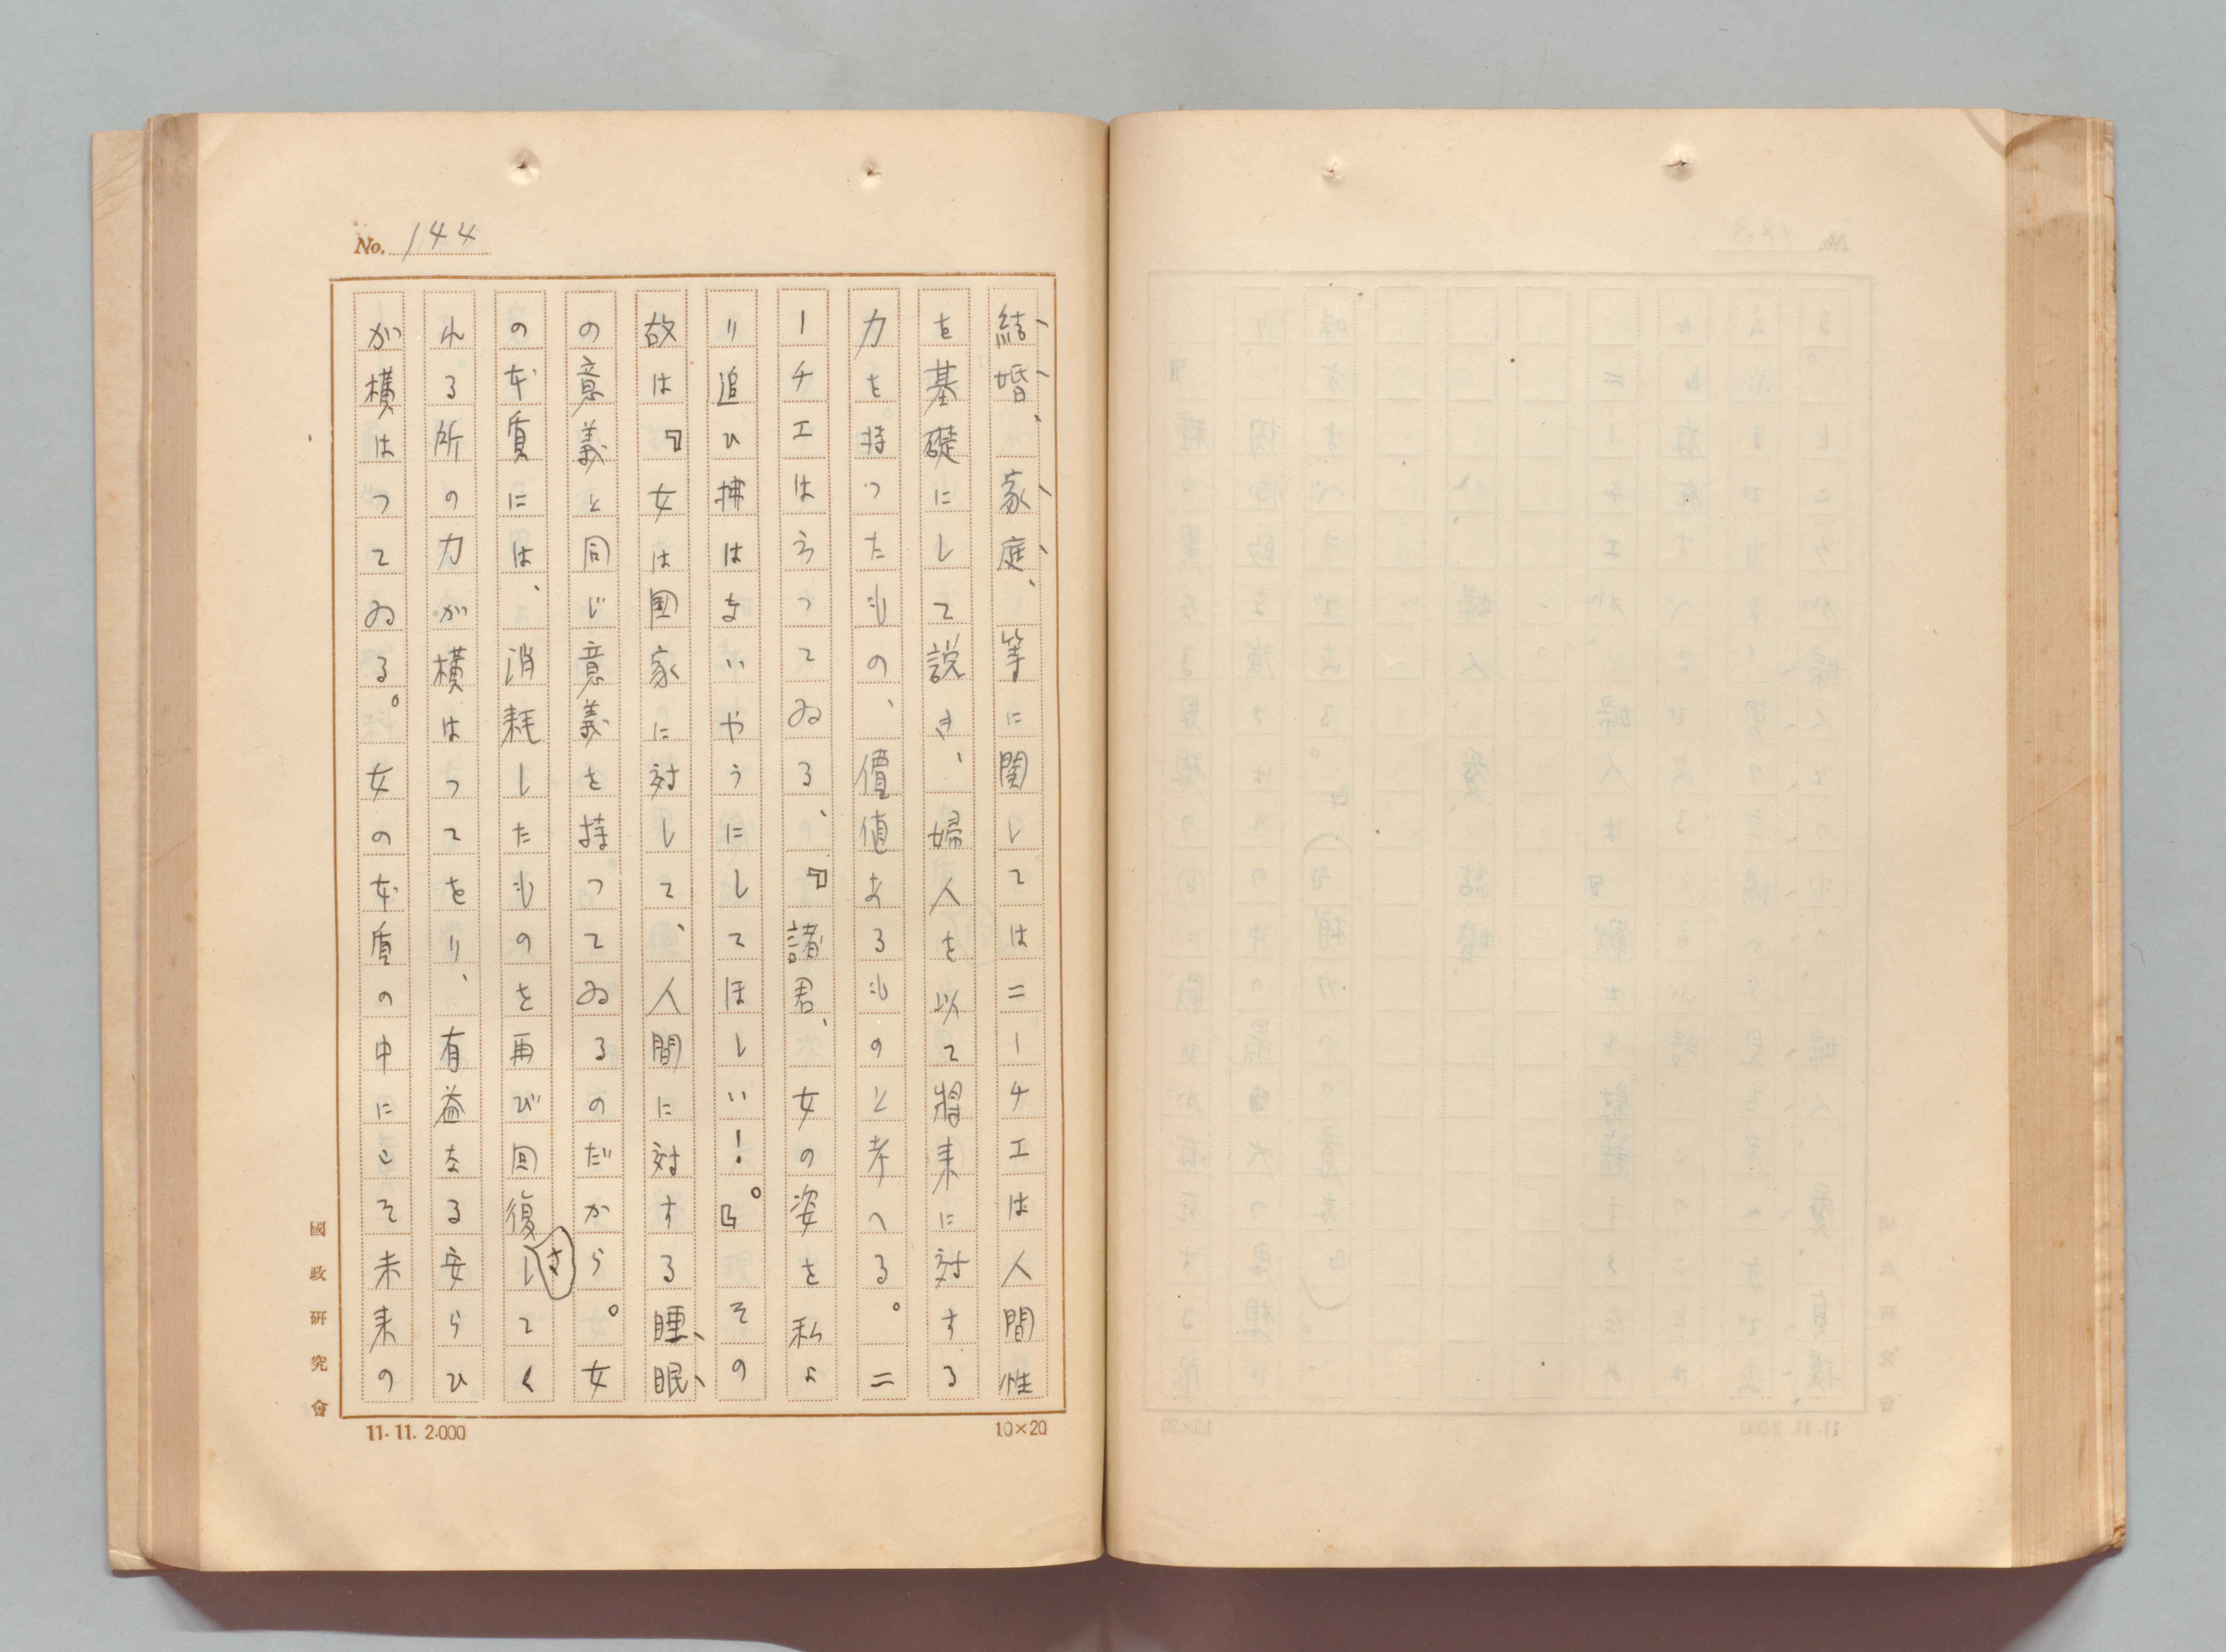 No. 144
結婚、家庭、等に関してはニーチエは人間性
を基礎にして説き、婦人を以て将来に対する
力を持つたもの、價値あるものと考へる。ニ
ーチエはうつてゐる、『諸君、女の姿を私よ
り追ひ拂はないやうにしてほしい！。』その
故は『女は国家に対して、人間に対する睡眠
の意義と同じ意義を持つてゐるのだから。女
の本質には、消耗したものを再び回復してく
さ
れる所の力が横はつてをり、有益なる安らひ
が横はつてゐる。女の本質の中にこそ未来の
國政研究會
11. 11. 2.000
10×20